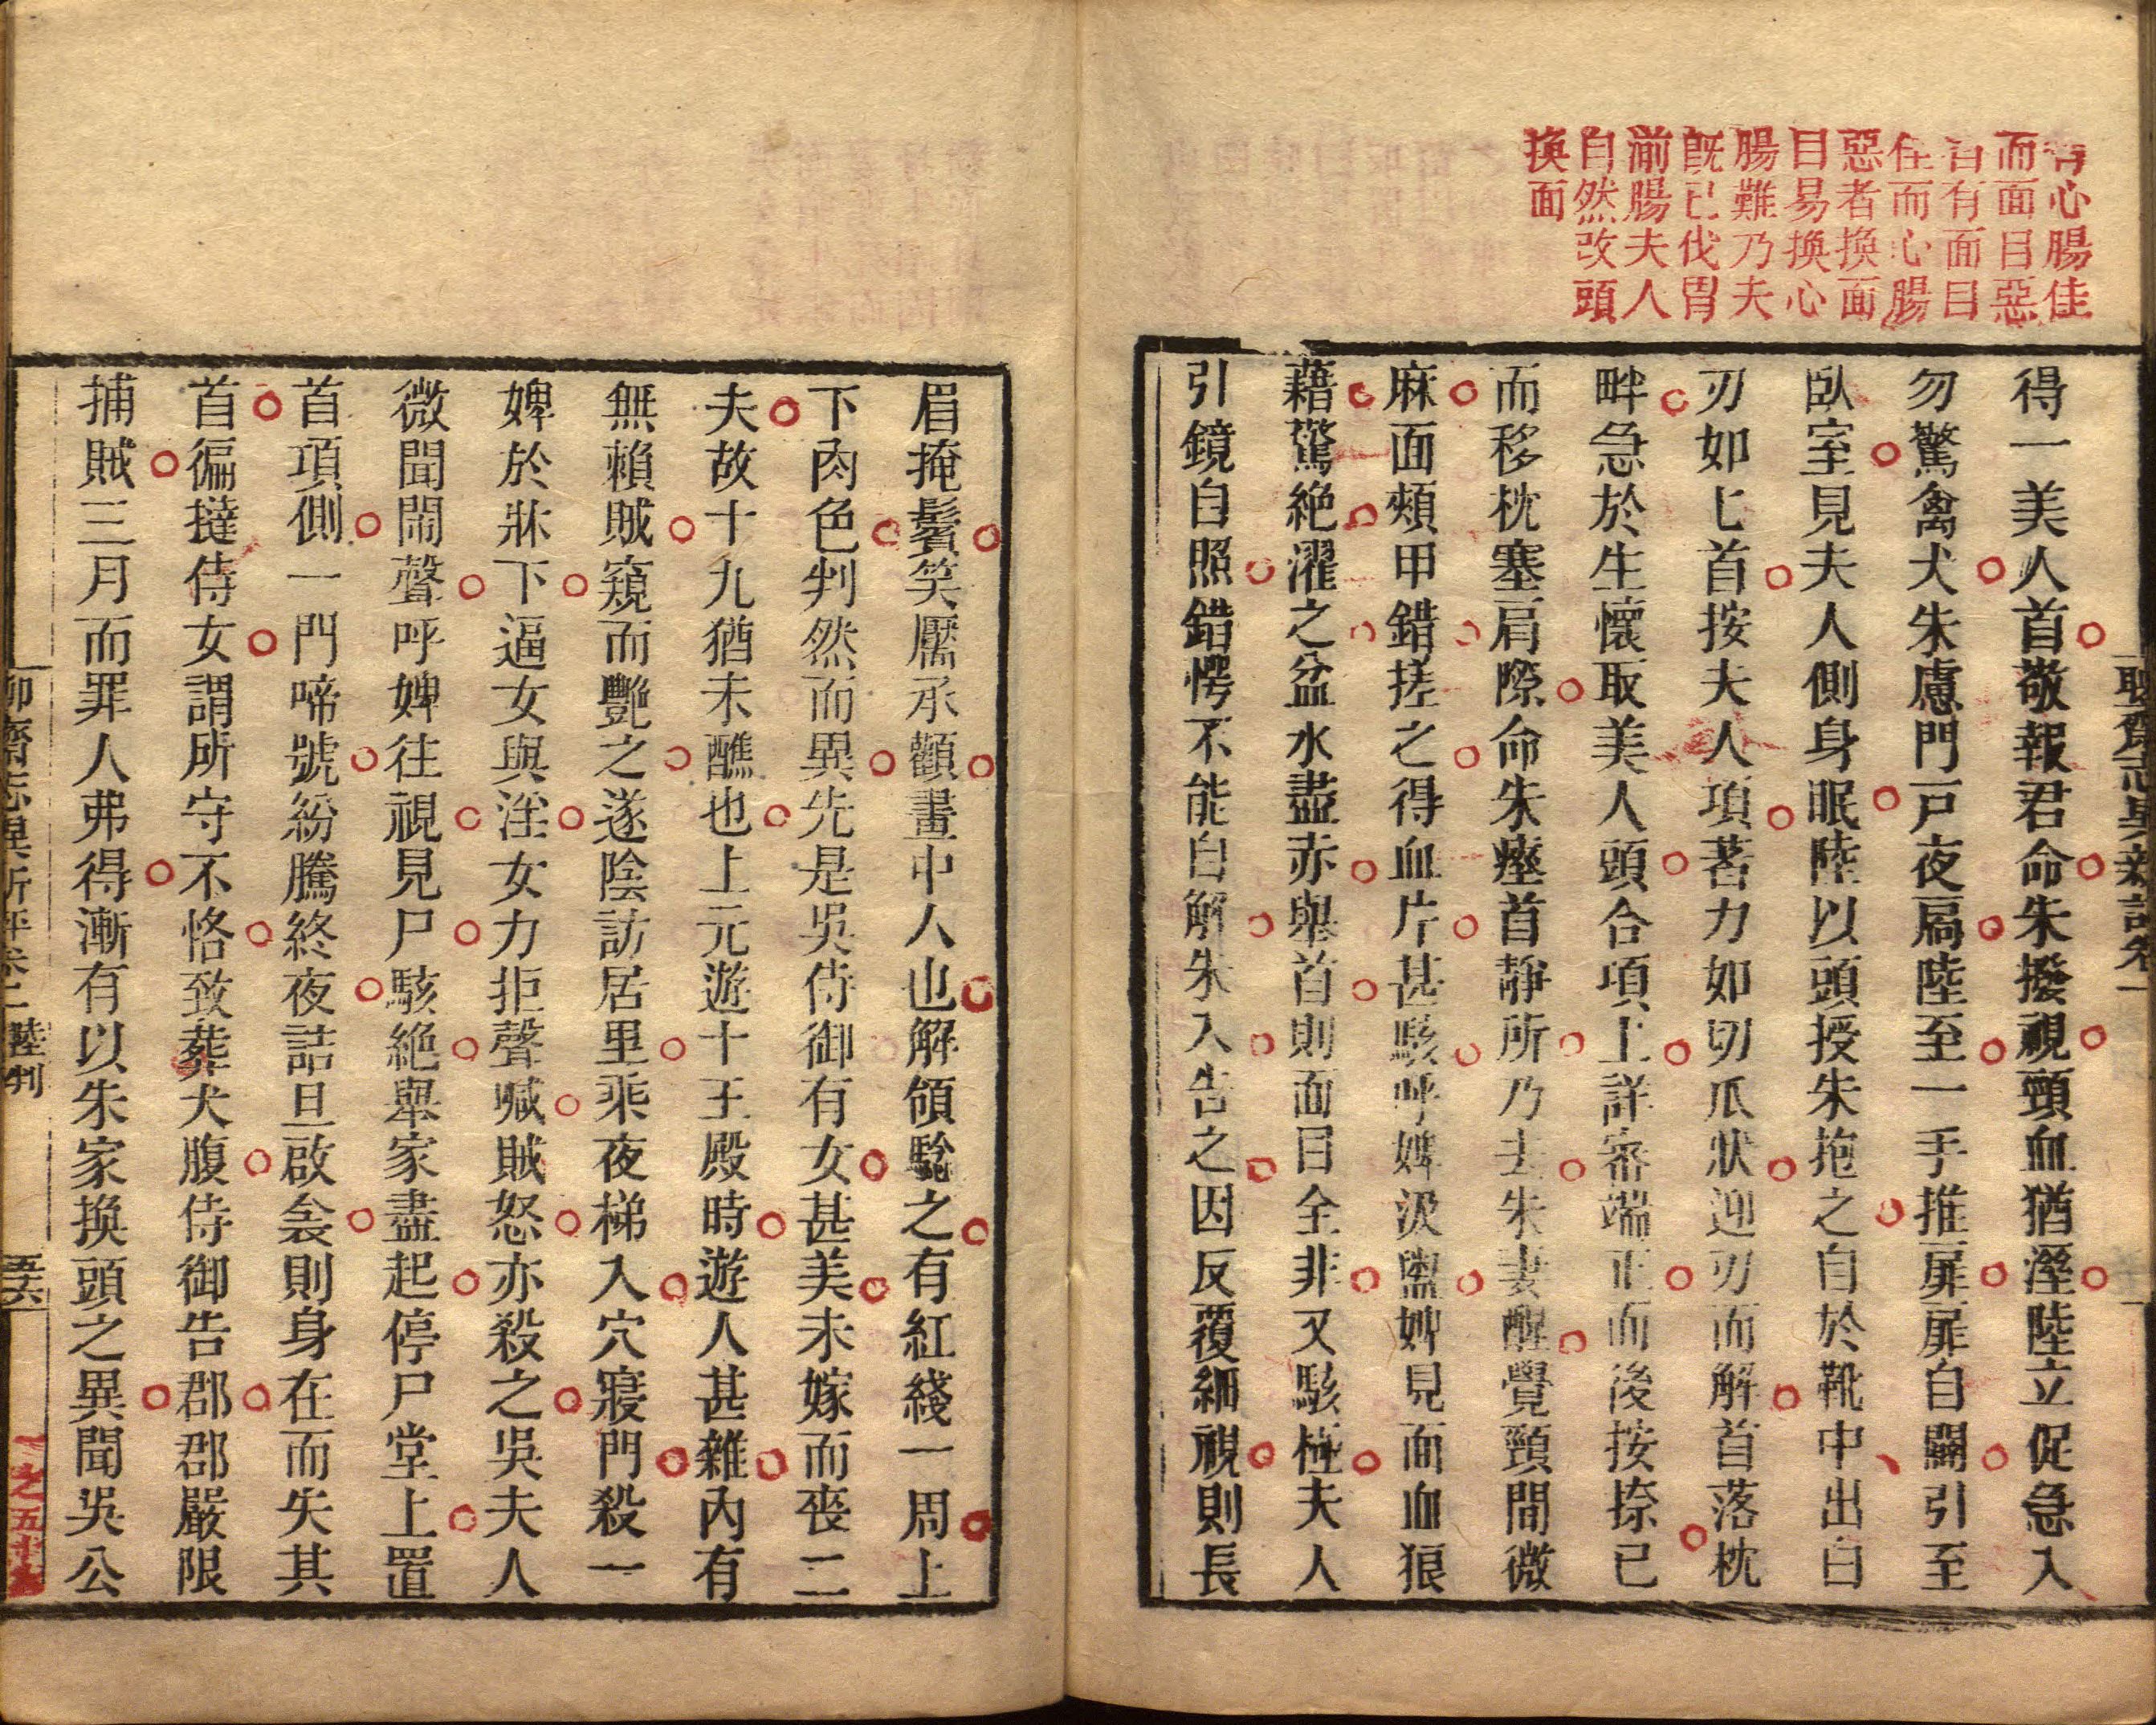 有心腸佳
而面目惡
者有面目
佳而心腸
惡者換面
目易換心
腸難乃夫
既已伐胃
湔腸夫人
自然改頭
換面
得一美人首敬報君命朱撥視頸血猶溼陸立促急入
勿驚禽犬朱慮門戶夜扃陸至一手推扉扉自闢引至
臥室見夫人側身眠陸以頭授朱抱之自於靴中出白
刃如匕首按夫人項著力如切瓜狀迎刃而解首落枕
畔急於生懷取美人頭合項上詳審端正而後按捺已
而移枕塞肩際命朱瘞首靜所乃去朱妻醒覺頸間微
麻面頰甲錯搓之得血片甚駭呼婢汲盥婢見面血狼
藉驚絶濯之盆水盡赤舉首則面目全非又駭極夫人
引鏡自照錯愕不能自解朱入告之因反覆細視則長
眉掩鬢笑靨承顴畫中人也解領驗之有紅綫一周上
下肉色判然而異先是吳侍御有女甚美未嫁而喪二
夫故十九猶未醮也上元遊十王殿時遊人甚雜內有
無賴賊窺而艷之遂陰訪居里乘夜梯入穴寢門殺一
婢於牀下逼女與淫女力拒聲喊賊怒亦殺之吳夫人
微聞閙聲呼婢往視見尸駭絶舉家盡起停尸堂上置
首項側一門啼號紛騰終夜詰旦啟衾則身在而失其
首徧撻侍女謂所守不恪致葬犬腹侍御告郡郡嚴限
捕賊三月而罪人弗得漸有以朱家換頭之異聞吳公
聊齋志異新評卷二 陸判 五六